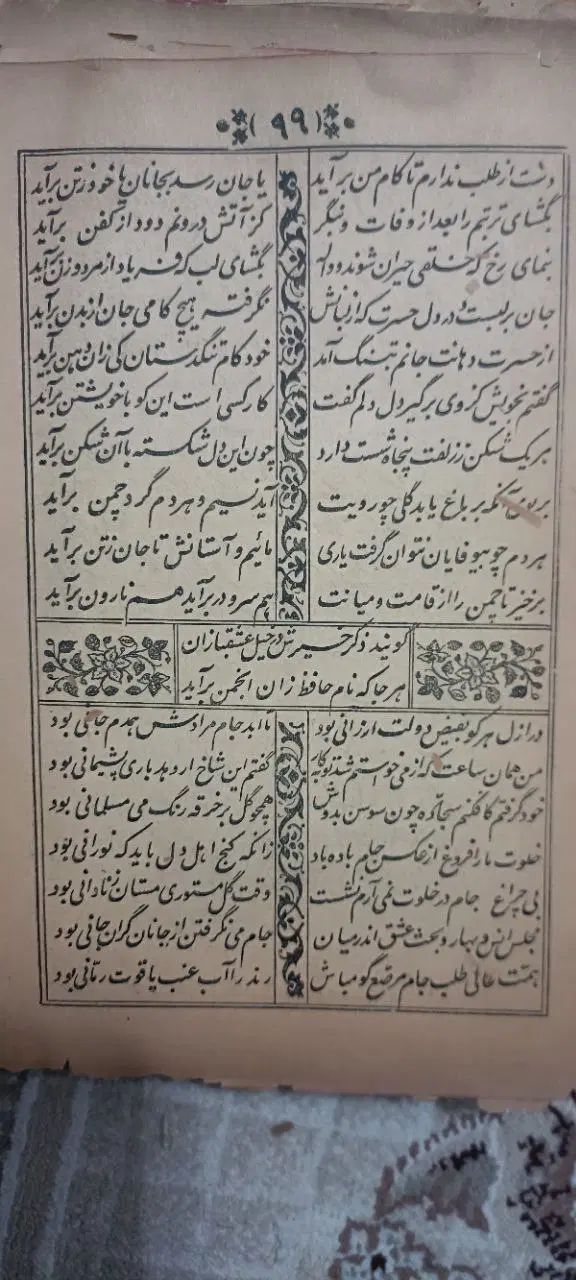 (۹۹)
دست از طلب ندارم تا کام من برآید یا جان رسد بجانان یا خود ز تن برآید
بگشای تربتم را بعد از وفات و بنگر کز آتش درونم دود از کفن برآید
بنمای رخ که خلقی حیران شوند و واله بگشای لب که فریاد از مرد و زن برآید
جان بر لبست و در دل حسرت که از لبانش نگرفته هیچ کامی جان از بدن برآید
از حسرت دهانت جانم بتنگ آمد خود کام تنگدستان کی زان دهن برآید
گفتم بخویش کز وی برگیر دل دلم گفت کار کسی است این کو با خویشتن برآید
هر یک شکن ز زلفت پنجاه شست دارد چون این دل شکسته با آن شکن برآید
بر بوی آنکه بر باغ یابد گلی چو رویت آید نسیم و هر دم گرد چمن برآید
هر دم چو بیوفایان نتوان گرفت یاری مائیم و آستانش تا جان ز تن برآید
برخیز تا چمن را از قامت و میانت هم سرو در برآید هم نارون برآید
گویند ذکر خیرش در خیل عشقبازان
هر جا که نام حافظ زان انجمن برآید
در ازل هر کو بفیض دولت ارزانی بود تا ابد جام مرادش همدم جانی بود
من همان ساعت که از می خواستم شد توبه کار گفتم این شاخ ار دهد باری پشیمانی بود
خود گرفتم کافکنم سجاده چون سوسن بدوش همچو گل بر خرقه رنگ می مسلمانی بود
خلوت ما را فروغ از عکس جام باده باد زانکه کنج اهل دل باید که نورانی بود
بی چراغ جام در خلوت نمی آرم نشست وقت گل مستوری مستان ز نادانی بود
مجلس انس و بهار و بحث عشق اندر میان جام می نگرفتن از جانان گران جانی بود
همت عالی طلب جام مرصع گو مباش رند را آب عنب یاقوت رمانی بود